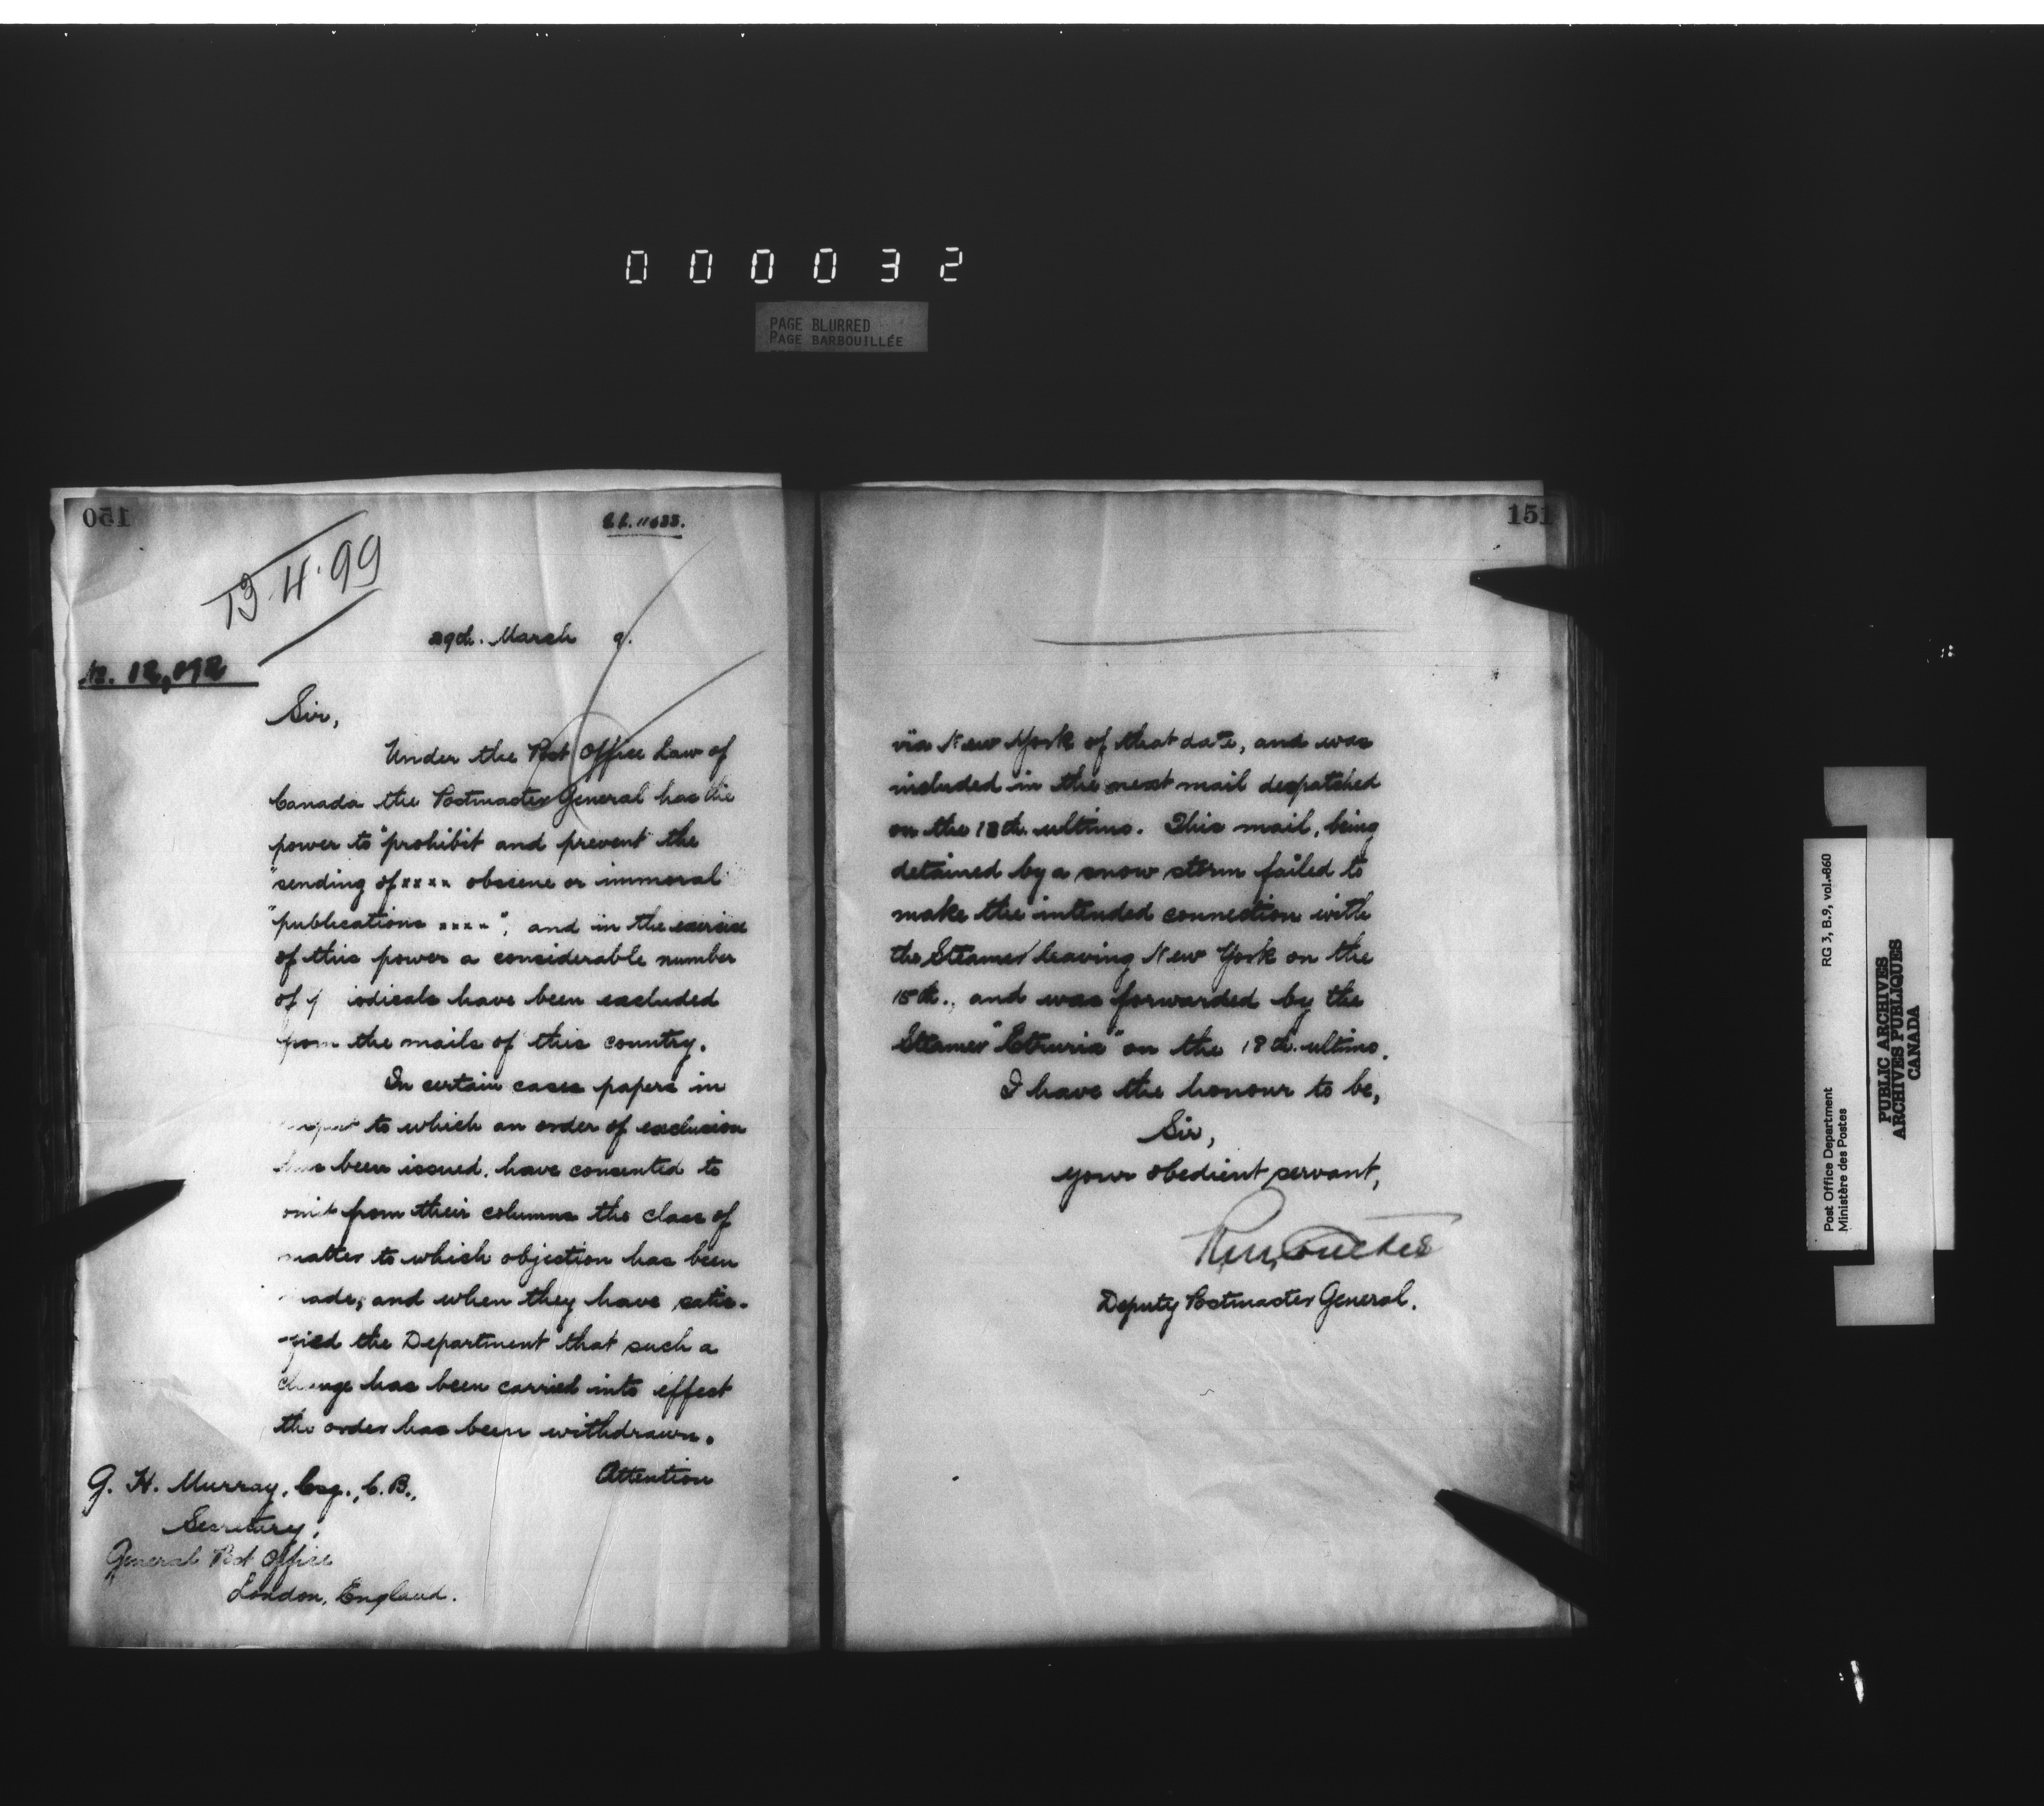 000032
PAGE BLURRED
PAGE BARBOUILLÉE
150
13.4.99
29th. March 9.
No. 12,092
Sir,
Under the Post Office Law of
Canada the Postmaster General has the
power to "prohibit and prevent the
"sending of xxxx obscene or immoral
"publications xxxx", and in the exercise
of this power a considerable number
of iodicals have been excluded
from the mails of this country.
In certain cases papers in
to which an order of exclusion
has been issued, have consented to
omit from their columns the class of
matter to which objection has been
made, and when they have satis-
fied the Department that such a
change has been carried into effect
the order has been withdrawn.
Attention
G. H. Murray, Esq., C.B.,
Secretary,
General Post Office
London, England.
151
via New York of that date, and was
included in the next mail despatched
on the 13th. ultimo. This mail, being
detained by a snow storm failed to
make the intended connection with
the Steamer leaving New York on the
15th., and was forwarded by the
Steamer "Etruria" on the 18th. ultimo.
I have the honour to be,
Sir,
your obedient servant,
Deputy Postmaster General.
Post Office Department RG 3, B.9, vol. 860
Ministère des Postes
PUBLIC ARCHIVES
ARCHIVES PUBLIQUES
CANADA